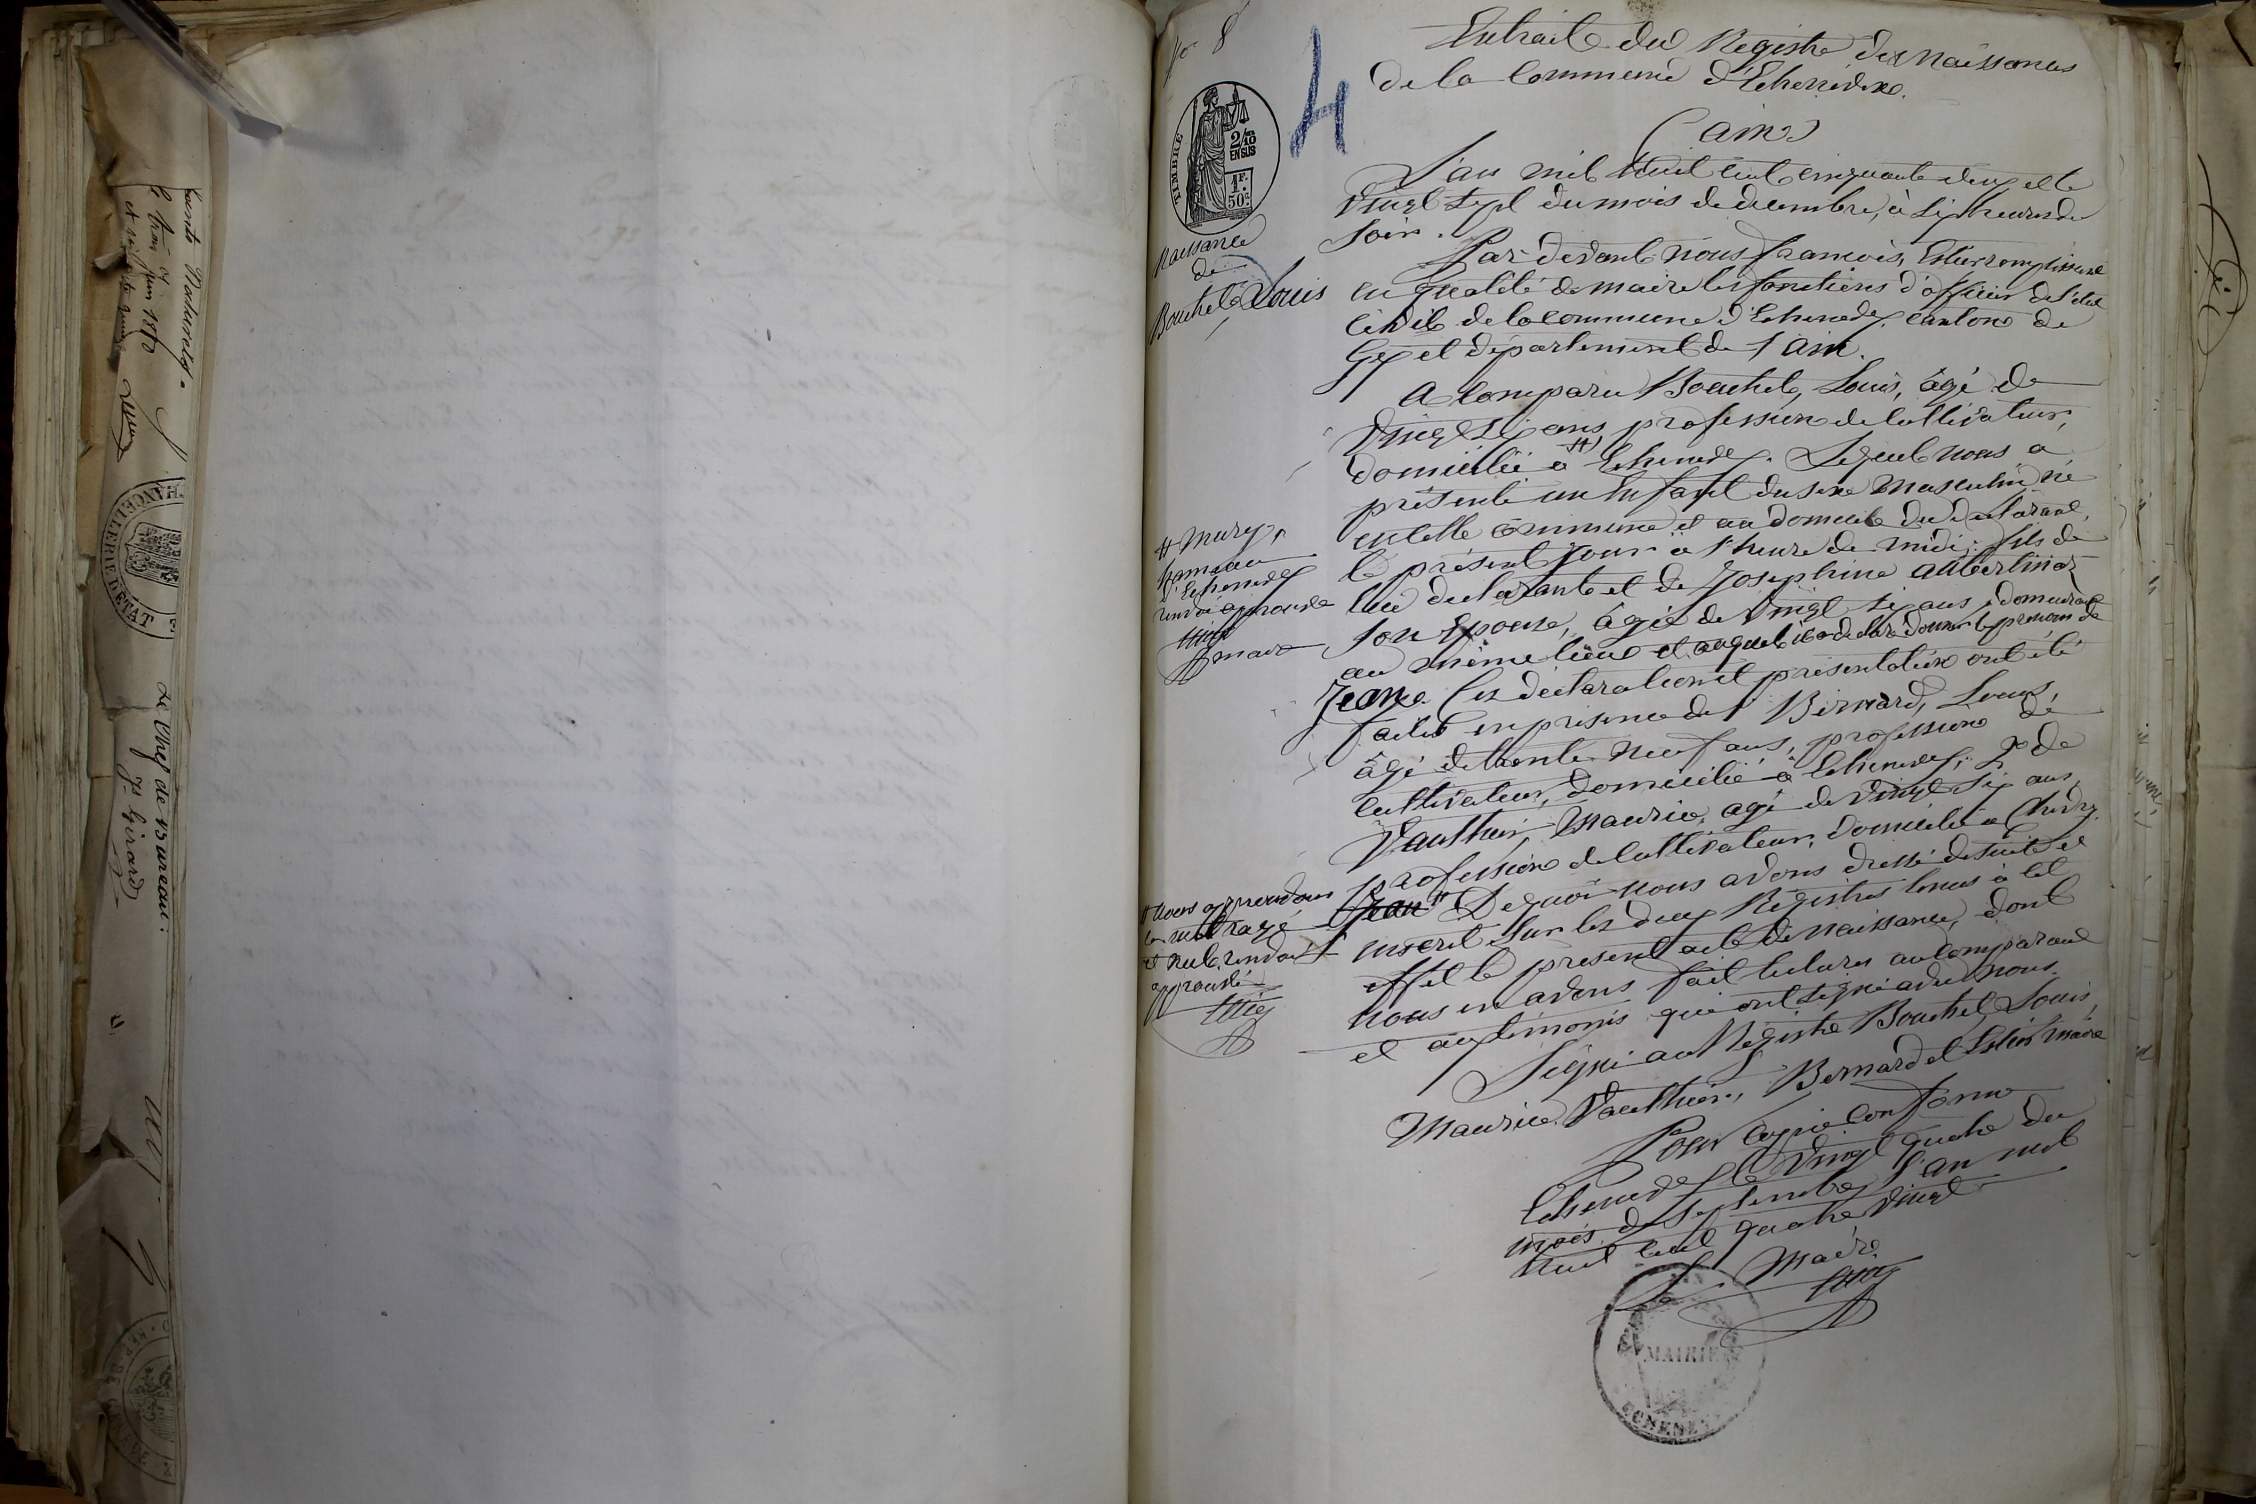 no 8
4
TIMBRE
2/10
EN SUS
1 F.
50 c
Naissance
de
Bouchet Louis
Extrait du Registre des Naissances
de la Commune d'Echenevex.
(ain)
L'an mil huit cent cinquante deux et le
vingt sept du mois de decembre, à six heures du
soir.
Par devant nous françois, remplissant
en qualité de maire les fonctions d'officier de l'état
civil de la commune d'Echenevex canton de
Gex et département de l'ain.
A Comparu Bouchet, Louis, âgé de
vingt six ans profession de Cultivateur,
domicilié à # Echenevex. Lequel nous a
présenté un Enfant du sexe Masculin né
en cette commune et au domicile du declarant,
le présent jour à l'heure de midi; fils de
lui declarant et de Josephine
son Epouse, âgée de vingt six ans, demeurant
au même lieu et auquel il a declaré donner le prénom de
Jean. Ces declaration et présentation ont été
faites en présence de Bernard, Louis,
âgé de trente neuf ans, profession de
cultivateur, domicilié à Echenevex, 2° de
Vauthier, Maurice, agé de vingt six ans,
profession de Cultivateur, domicilié à Chevry.
Jean # De quoi nous avons dressé de suite et
inscrit sur les deux Registres tenus à cet
effet le present acte de naissance, dont
nous en avons fait lecture au comparant
et aux témoins qui ont signé avec nous.
Signé au Registre Bouchet, Louis,
Maurice Vauthier, Bernard et maire
Pour copie conforme
Echenevex le vingt quatre du
mois de septembre l'an mil
huit cent quatre vingt
Le Maire
MAIRIE
# Murex,
hameau
d'Echenevex
renvoi approuvé
maire
# nous approuvons
le mot rayé
et nul, renvoi
approuvé
Le Chef de Bureau:
Js Girard
CHANCELLERIE D'ÉTAT